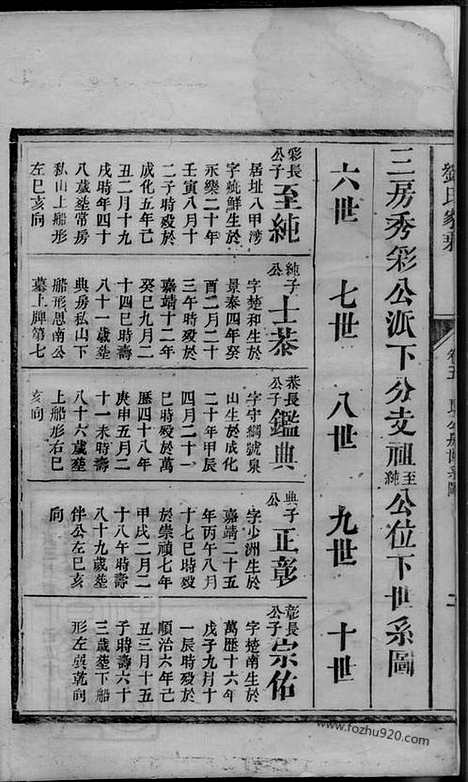 三房秀彩公派下分支祖至純公位下世系圖
六世 七世 八世 九世 十世
彩長公子 至純
居址八甲湾
字純鮮生於
永樂二十年
壬寅八月十
二子時殁於
成化五年己
丑二月十九
戌時年四十
八歲塟常房
私山上船形
左巳亥向
純子公 士恭
字楚和生於
景泰四年癸
酉二月二十
三午時殁於
嘉靖十二年
癸巳九月二
十四巳時壽
八十一歲塟
典房私山下
船形思南公
墓上牌第七
恭長公子 鑑典
字守綱號泉
山生於成化
二十年甲辰
四月二十一
巳時殁於萬
曆四十八年
庚申五月二
十一未時壽
八十六歲塟
上船形右巳
亥向
典子公 正彰
字少洲生於
嘉靖二十五
年丙午八月
十七巳時殁
於崇禎七年
甲戌二月二
十八午時壽
八十九歲塟
伴公左巳亥
向
彰長公子 宗佑
字楚南生於
萬曆十六年
戊子九月十
一辰時殁於
順治六年己
丑三月十五
子時壽六十
三歲塟下船
形左巽乾向
www.fozhu920.com